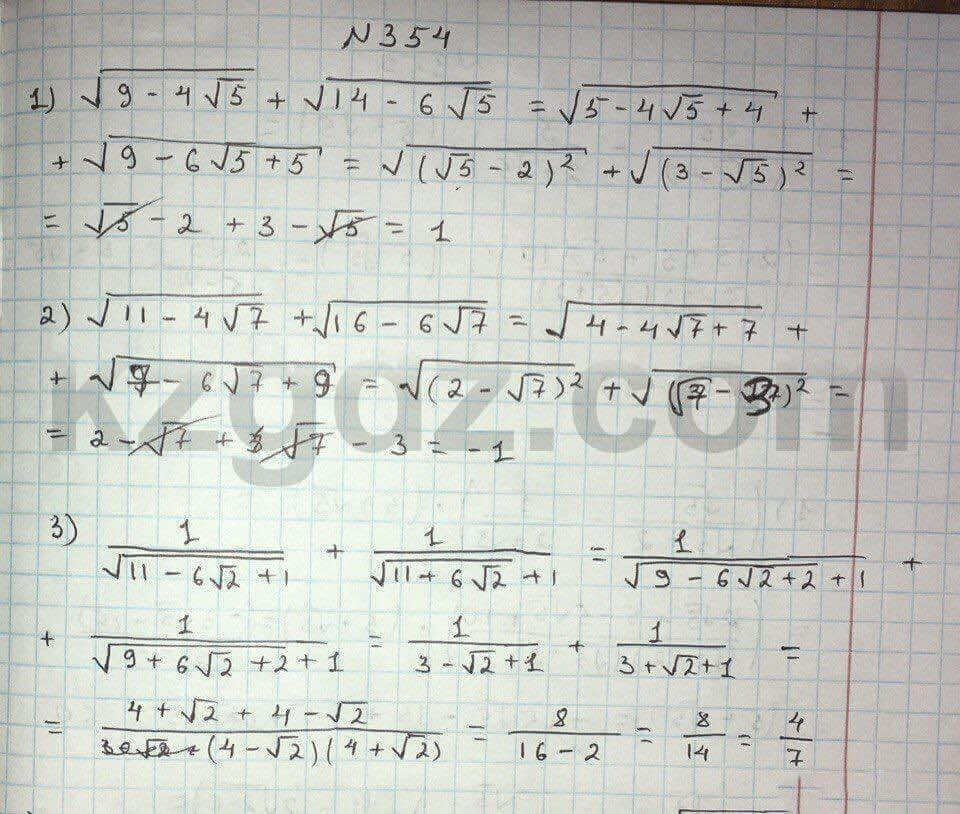 N 354
1) √(9 - 4√5) + √(14 - 6√5) = √(5 - 4√5 + 4) +
+ √(9 - 6√5 + 5) = √((√5 - 2)²) + √((3 - √5)²) =
= √5 - 2 + 3 - √5 = 1
2) √(11 - 4√7) + √(16 - 6√7) = √(4 - 4√7 + 7) +
+ √(7 - 6√7 + 9) = √((2 - √7)²) + √((√7 - 3)²) =
= 2 - √7 + √7 - 3 = -1
3) 1/(√(11 - 6√2) + 1) + 1/(√(11 + 6√2) + 1) = 1/(√(9 - 6√2 + 2) + 1) +
+ 1/(√(9 + 6√2 + 2) + 1) = 1/(3 - √2 + 1) + 1/(3 + √2 + 1) =
= (4 + √2 + 4 - √2)/((4 - √2)(4 + √2)) = 8/(16 - 2) = 8/14 = 4/7
kzgdz.com